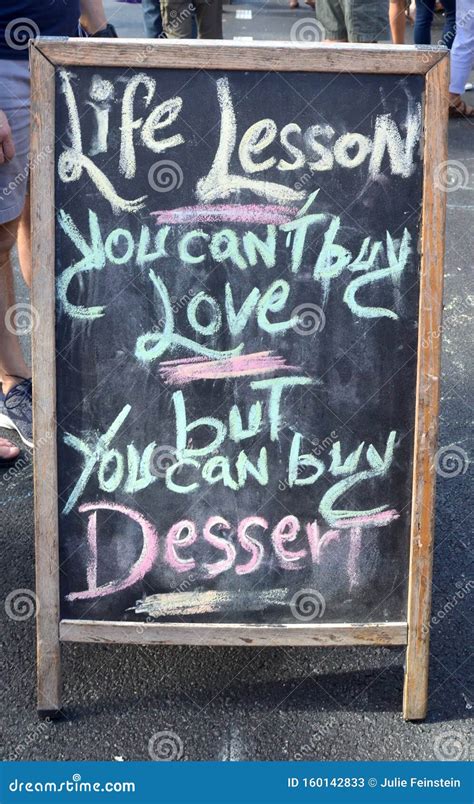 Life Lesson
You can't buy
Love
but
You can buy
Dessert
dreamstime.com
ID 160142833 © Julie Feinstein